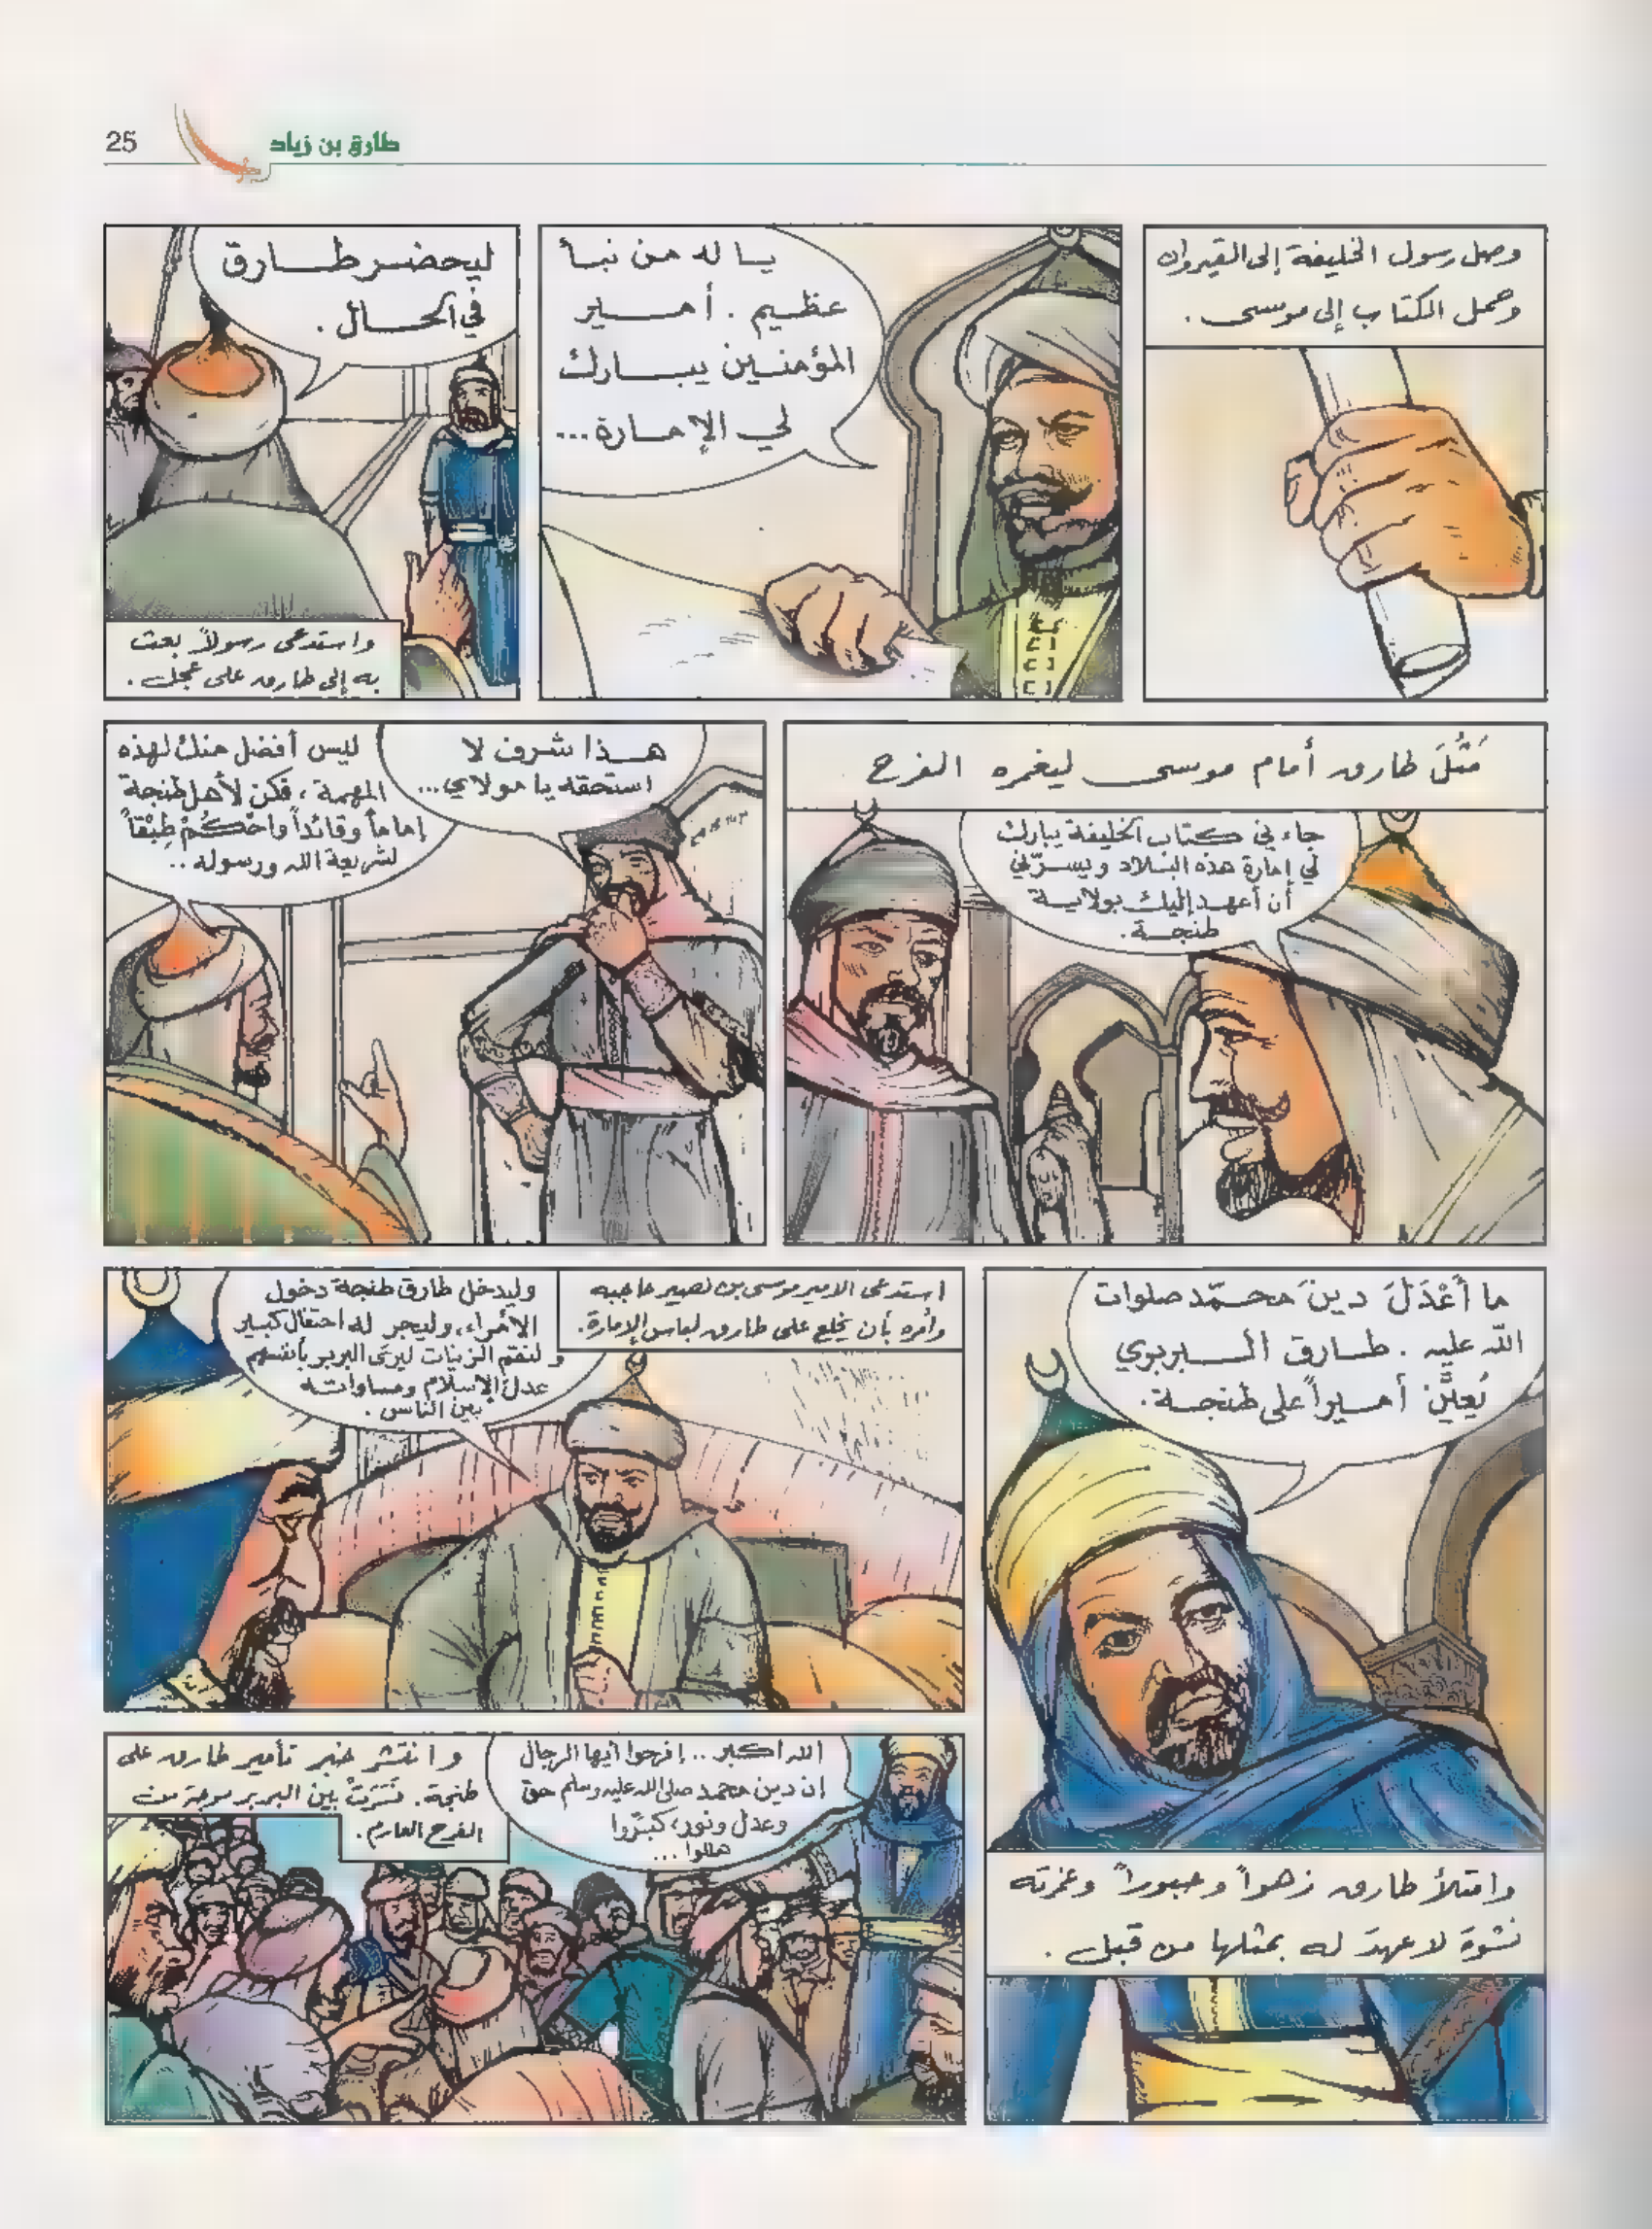 25
طارق بن زياد
وصل رسول الخليفة إلى القيروان
وحمل الكتاب إلى موسى .
يا له من نبأ
عظيم . أمير
المؤمنين يبارك
لي الإمارة ...
ليحضر طارق
في الحال .
واستدعى رسولاً بعث
به إلى طارق على عجل .
مَثُلَ طارق أمام موسى ليغمره الفرح
جاءني كتاب الخليفة يبارك
لي إمارة هذه البلاد ويسرّني
أن أعهد إليك بولاية
طنجة .
هذا شرف لا
استحقه يا مولاي ...
ليس أفضل منك لهذه
المهمة ، فكن لأهل طنجة
إماماً وقائداً واحْكُمْ طِبْقاً
لشريعة الله ورسوله ..
ما أَعْدَلَ دينَ محمّد صلوات
الله عليه . طارق البربري
يُعيَّن أميراً على طنجة .
وامتلأ طارق زهواً وحبوراً وغمرته
نشوة لا عهدَ له بمثلها من قبل .
استدعى الامير موسى بن نصير حاجبه
وأمره بأن يخلع على طارق لباس الإمارة .
وليدخل طارق طنجة دخول
الأمراء، وليجر له احتفال كبير
ولتقم الزينات ليرى البربر بأنفسهم
عدل الإسلام ومساواته
بين الناس .
الله اكبر .. إفرحوا أيها الرجال
إن دين محمد صلى الله عليه وسلم حق
وعدل ونور، كبّروا
هللوا ...
وانتشر خبر تأمير طارق على
طنجة . فسَرَتْ بين البربر موجة من
الفرح العارم .